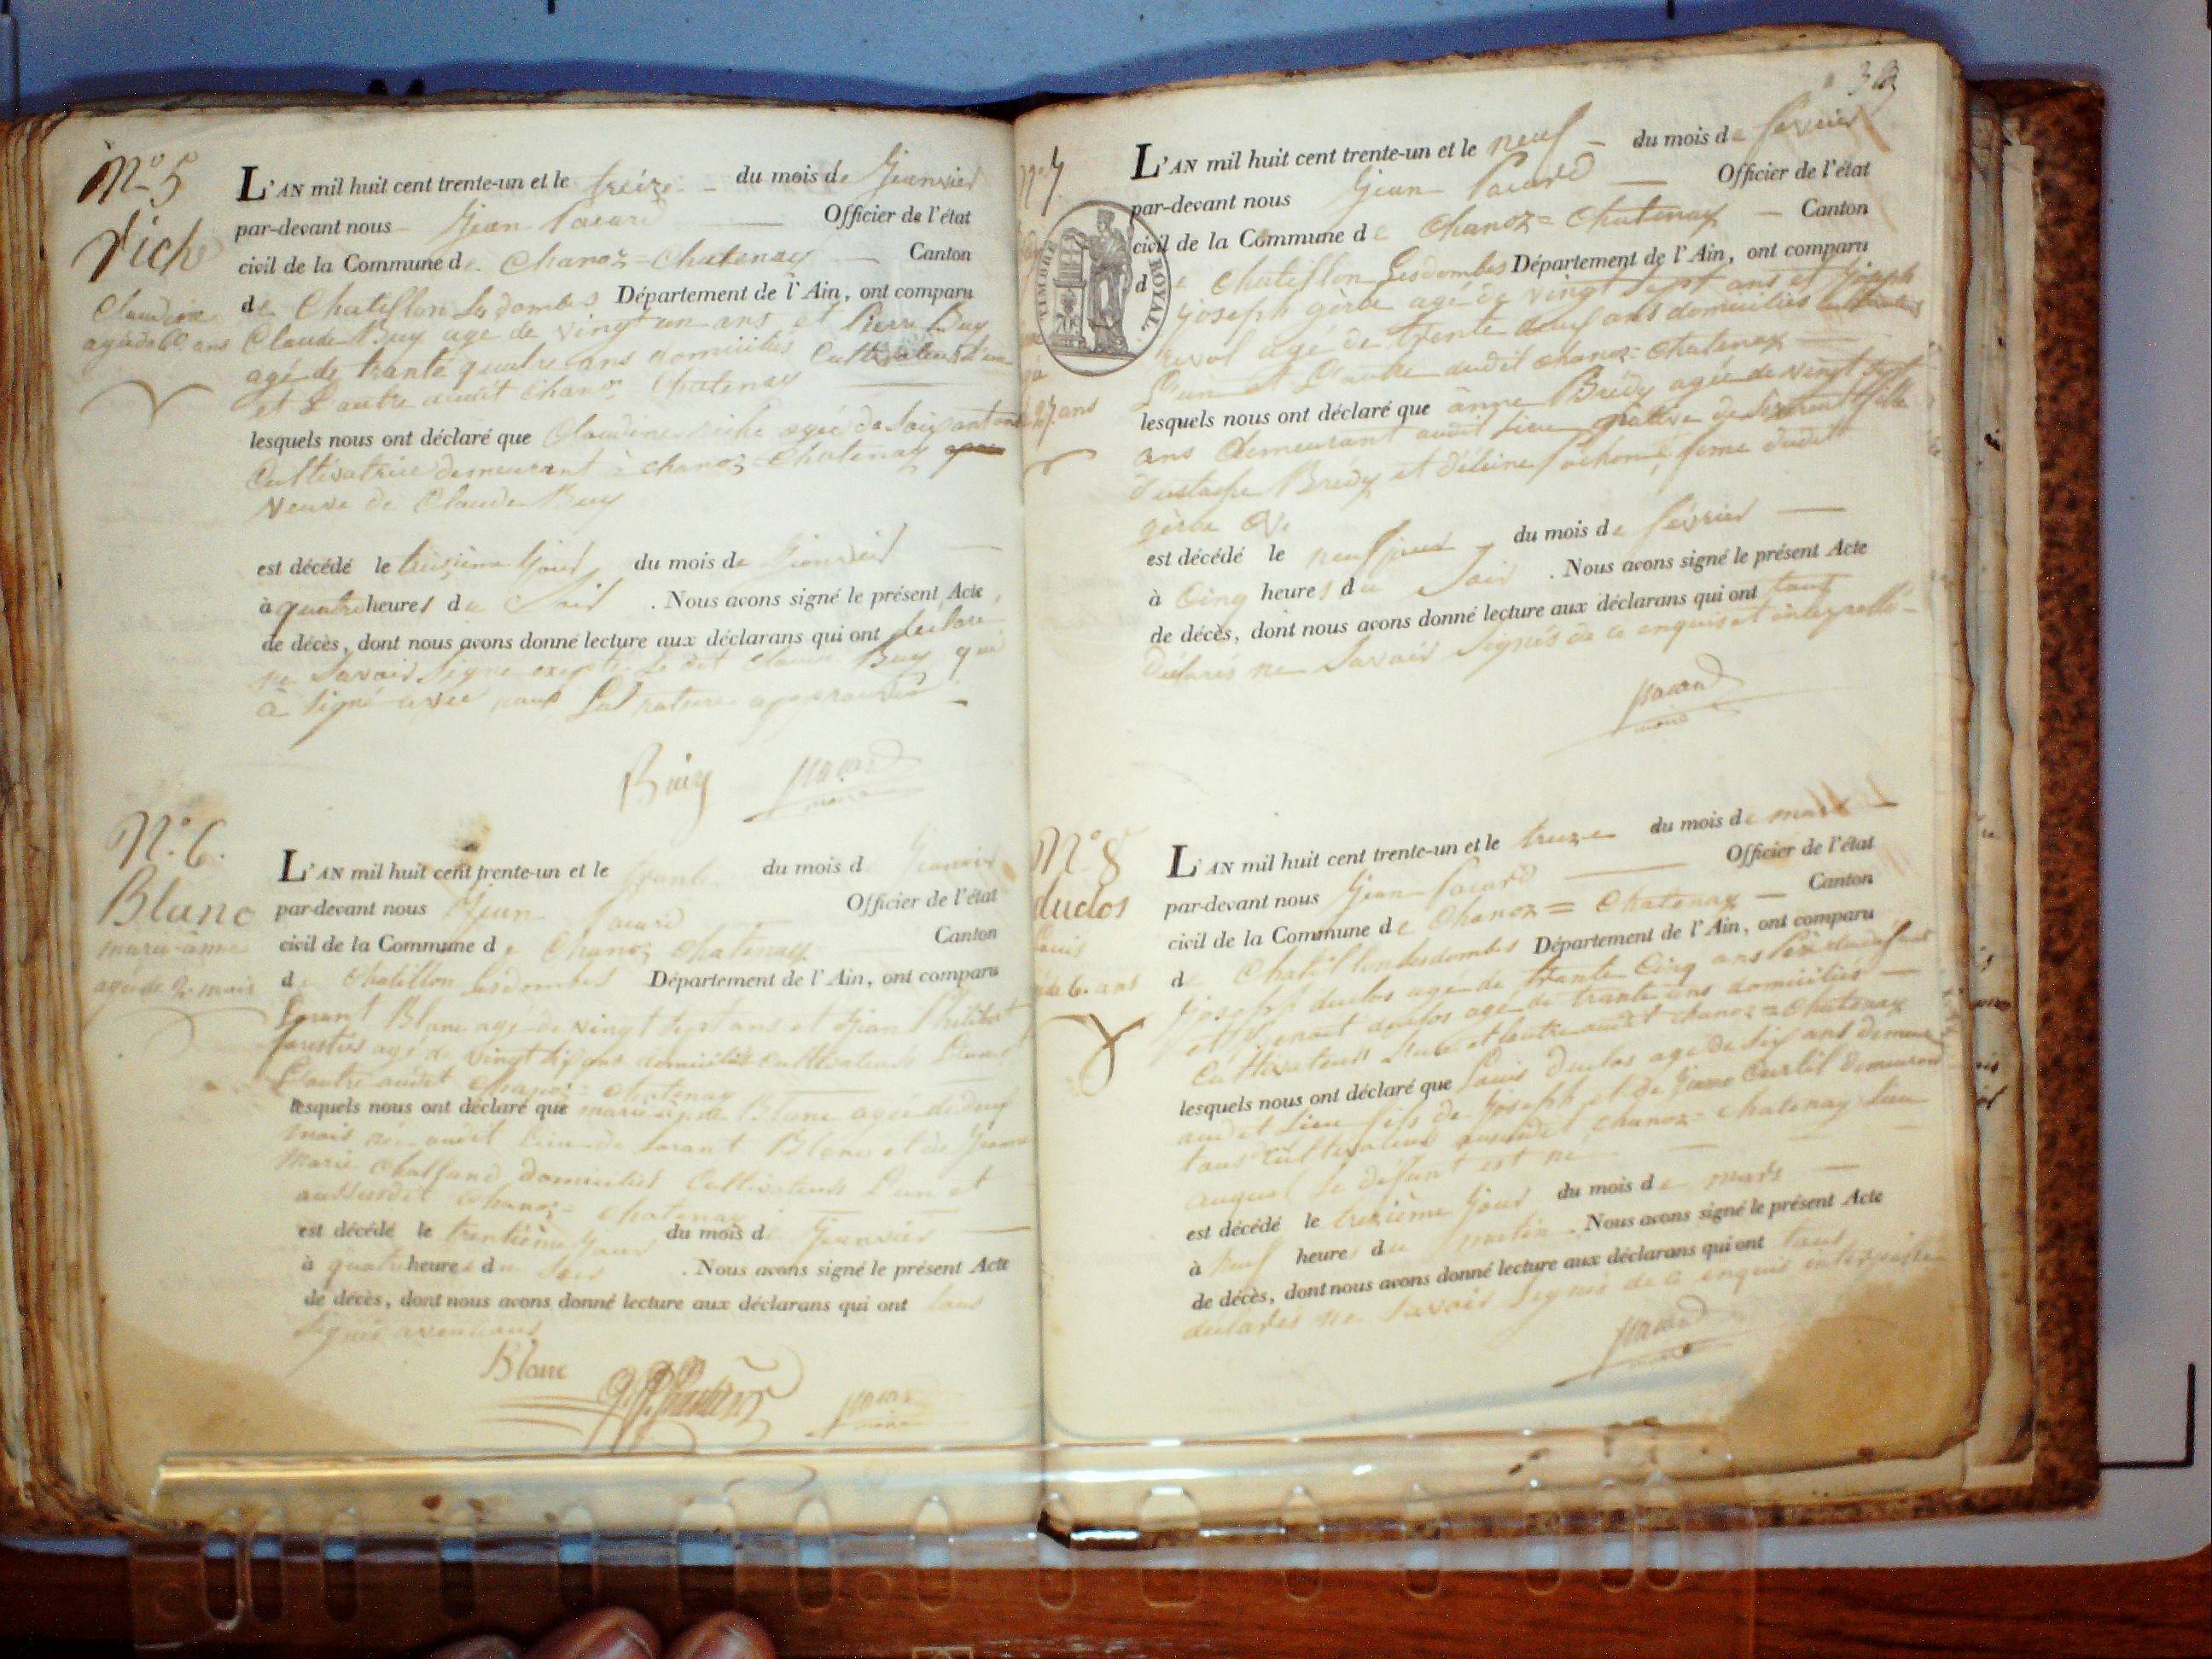 N.º 5
Viché
Claudine
agée de 60 ans
L'AN mil huit cent trente-un et le treize du mois de Janvier
par-devant nous Jean Pacard Officier de l'état
civil de la Commune de Chanoz=Chatenay Canton
de Chatillon Lesdombes Département de l'Ain, ont comparu
Claude Buy age de vingt un ans et Pierre Buy
agé de trante quatre ans domiciliés Cultivateurs l'un
et L'autre audit Chanoz Chatenay
lesquels nous ont déclaré que Claudine Viché agée de Soixante ans
Cultivatrice demeurant à Chanoz Chatenay
Veuve de Claude Buy
est décédé le treizième Jour du mois de Janvier
à quatre heures du Soir . Nous avons signé le présent Acte
de décès, dont nous avons donné lecture aux déclarans qui ont declaré
ne Savoir Signe excepté le dit Claude Buy qui
à Signé avec nous La rature approuvée
Buy Pacard
maire
N.º 6.
Blanc
marie-anne
agée de 2 mois
L'AN mil huit cent trente-un et le trante du mois d Janvier
par-devant nous Jean Pacard Officier de l'état
civil de la Commune de Chanoz Chatenay Canton
de Chatillon Lesdombes Département de l'Ain, ont comparu
Lorant Blanc agé de vingt Sept ans et Jean Philibert
agé de vingt Six ans domiciliés cultivateurs L'un et
L'autre audit Chanoz=Chatenay
lesquels nous ont déclaré que marie anne Blanc agée de deux
mois née audit Lieu de Lorant Blanc et de Jeanne
Marie Chaffand domiciliés Cultivateurs L'un et
aussusdit Chanoz=Chatenay
est décédé le trentième Jour du mois d Janvier
à quatre heures du Soir . Nous avons signé le présent Acte
de décès, dont nous avons donné lecture aux déclarans qui ont tous
Signé avec nous
Blanc Pacard
maire
N.º 7
27. ans
TIMBRE ROYAL.
L'AN mil huit cent trente-un et le neuf du mois de fevrier
par-devant nous Jean Pacard Officier de l'état
civil de la Commune de Chanoz=Chatenay Canton
de Chatillon Lesdombes Département de l'Ain, ont comparu
Joseph gerbe agé de vingt Sept ans et Joseph
revol agé de trente deux ans domiciliés
L'un et L'autre audit Chanoz=Chatenay
lesquels nous ont déclaré que anne Bredy agée de vingt Sept
ans demeurant audit Lieu native de fille
d'ustache Bredy et d'éléine Pochon, feme dudit
gerbe
est décédé le neuf jour du mois de février
à Cinq heures du Soir . Nous avons signé le présent Acte
de décès, dont nous avons donné lecture aux déclarans qui ont tous
Déclarés ne Savoir Signés de ce enquis et interpellé
Pacard
maire
N.º 8
duclos
Louis
6. ans
L'AN mil huit cent trente-un et le treize du mois de mars
par-devant nous Jean Pacard Officier de l'état
civil de la Commune de Chanoz=Chatenay Canton
de Chatillon lesdombes Département de l'Ain, ont comparu
Joseph duclos age de trante Cinq ans Père du défunt
et Benoit duclos agé de trante ans domiciliés
Cultivateurs L'un et lautre audit chanoz=Chatenay
lesquels nous ont déclaré que Louis Duclos age de Six ans demeurant
audit Lieu fils de Joseph et de Jeanne Curtil demeurant
tous Cultivateurs susdit Chanoz=Chatenay Lieu
auquel le défunt est né
est décédé le treizième Jour du mois de mars
à neuf heures du matin . Nous avons signé le présent Acte
de décès, dont nous avons donné lecture aux déclarans qui ont tous
déclarés ne Savoir Signés de ce enquis interpellés
Pacard
maire